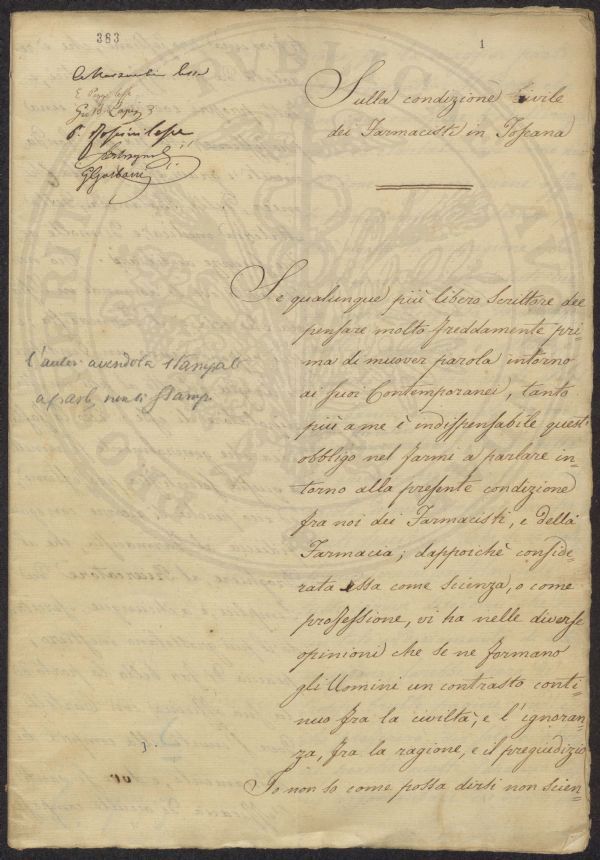 383
1
Sulla condizione Civile
dei Farmacisti in Toscana
Se qualunque più libero Scrittore dee
pensare molto freddamente pri=
ma di muover parola intorno
ai suoi Contemporanei, tanto
più a me è indispensabile quest'
obbligo nel farmi a parlare in=
torno alla presente condizione
fra noi dei Farmacisti, e della
Farmacia; dappoichè conside=
rata essa come scienza, o come
professione, vi ha nelle diverse
opinioni che se ne formano
gli Uomini un contrasto conti=
nuo fra la civiltà, e l'ignoran=
za, fra la ragione, e il pregiudizio
Io non so come possa dirsi non scien=
l'autor avendola stampat
a parte, non si stamp